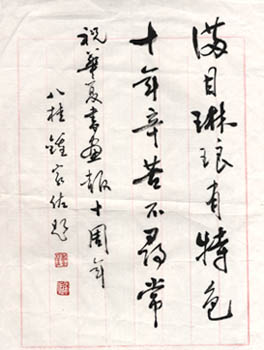 满目琳琅有特色
十年辛苦不寻常
祝华夏书画报十周年
八桂鍾家佐题